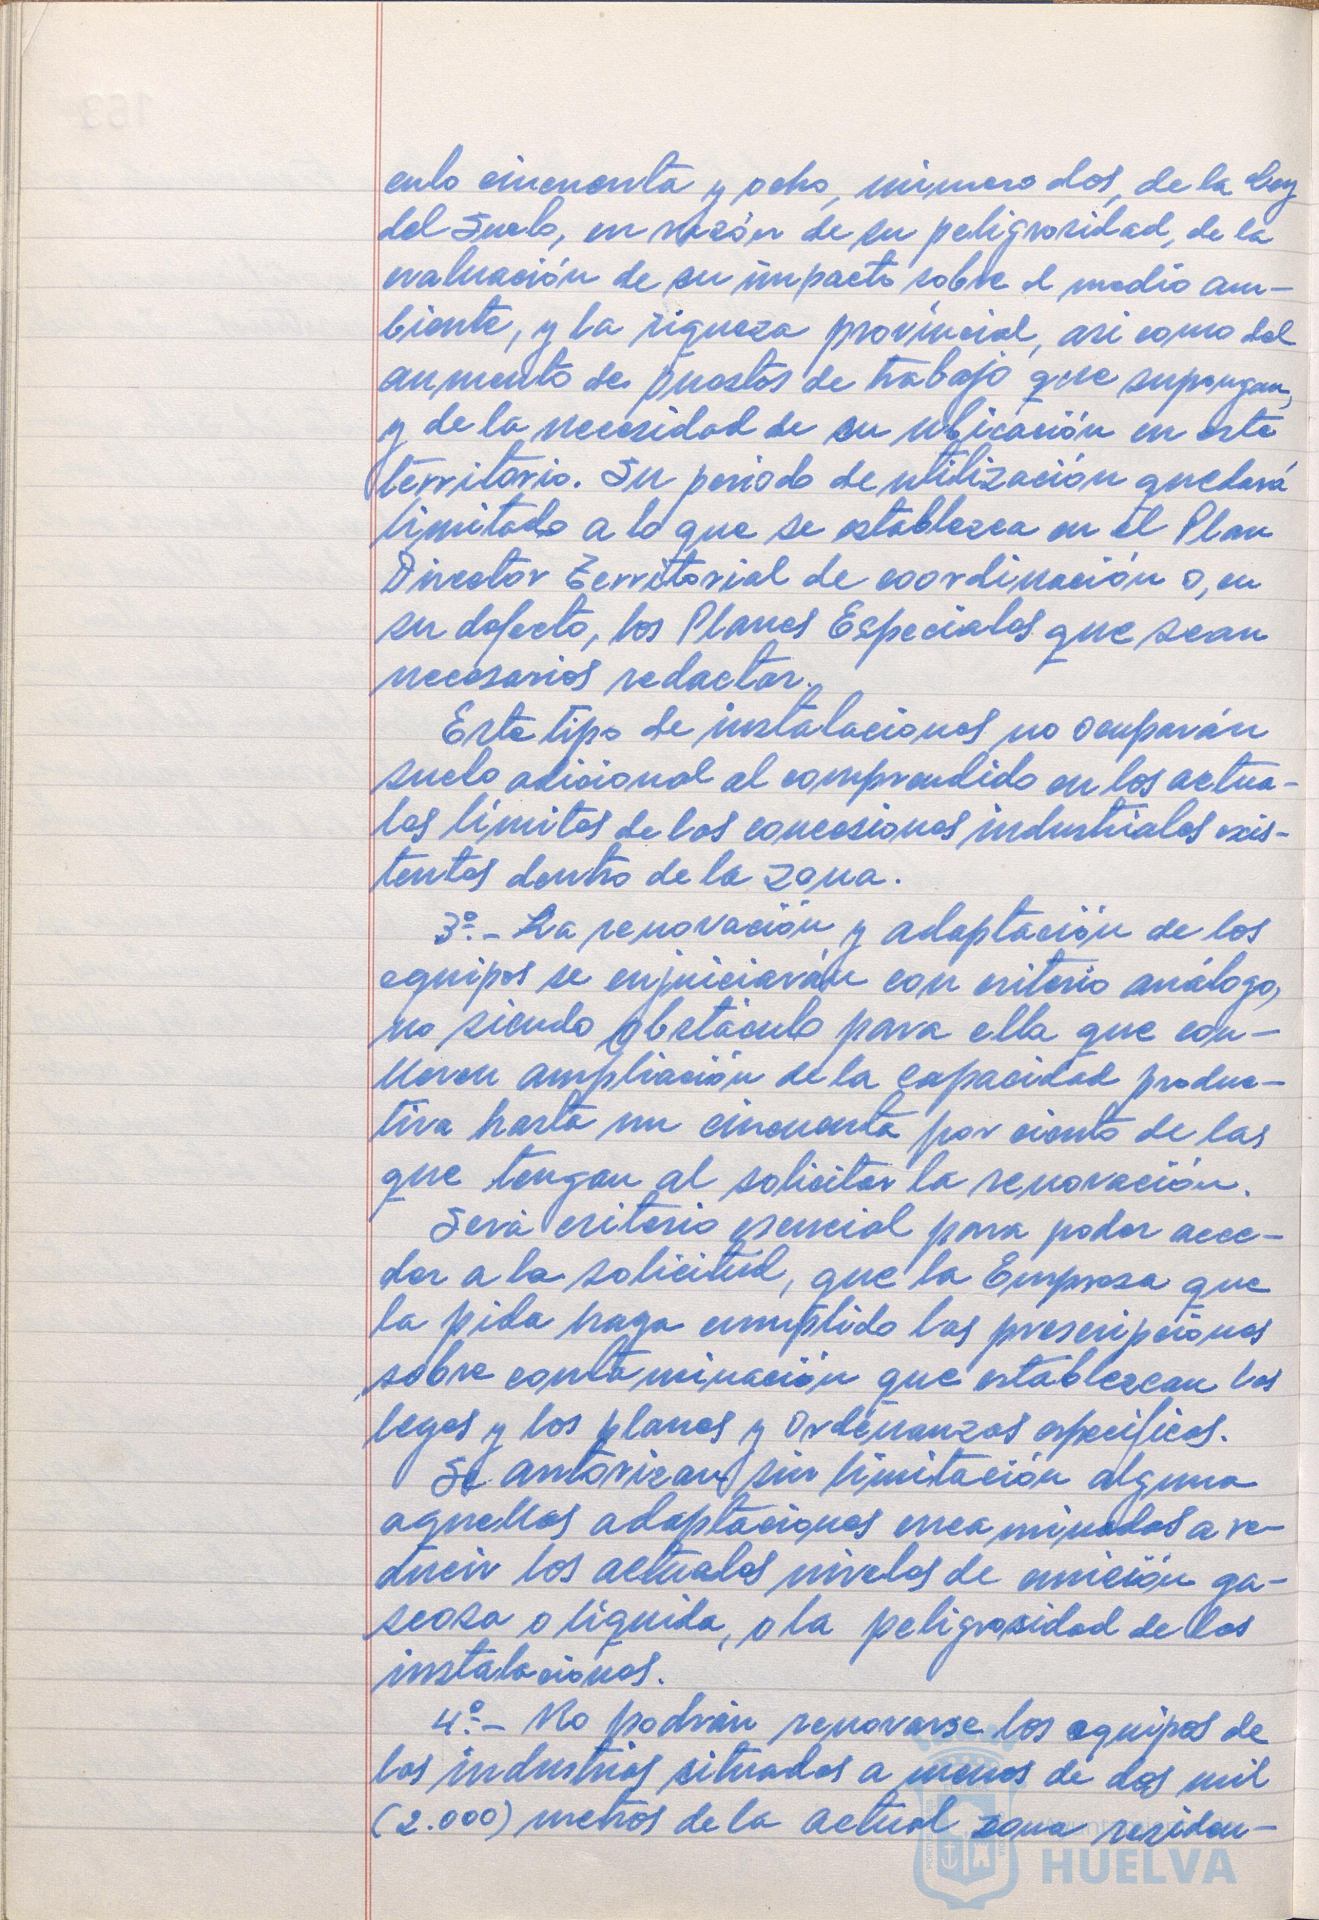 culo cincuenta y ocho, número dos, de la Ley
del Suelo, en razón de su peligrosidad, de la
evaluación de su impacto sobre el medio am-
biente, y la riqueza provincial, asi como del
aumento de puestos de trabajo que supongan,
y de la necesidad de su ubicación en este
territorio. Su periodo de utilización quedará
limitado a lo que se establezca en el Plan
Director Territorial de coordinación o, en
su defecto, los Planes Especiales que sean
necesarios redactar.
Este tipo de instalaciones no ocuparán
suelo adicional al comprendido en los actua-
les límites de las concesiones industriales exis-
tentes dentro de la zona.
3º.- La renovación y adaptación de los
equipos se enjuiciarán con criterio análogo,
no siendo obstáculo para ella que con-
lleven ampliación de la capacidad produc-
tiva hasta un cincuenta por ciento de las
que tengan al solicitar la renovación.
Será criterio esencial para poder acce-
der a la solicitud, que la Empresa que
la pida haya cumplido las prescripciones
sobre contaminación que establezcan las
leyes y los planes y Ordenanzas específicas.
Se autorizan sin limitación alguna
aquellas adaptaciones encaminadas a re-
ducir los actuales niveles de emición ga-
seosa o líquida, o la peligrosidad de las
instalaciones.
4º.- No podrán renovarse los equipos de
las industrias situadas a menos de dos mil
(2.000) metros de la actual zona residen-
HUELVA